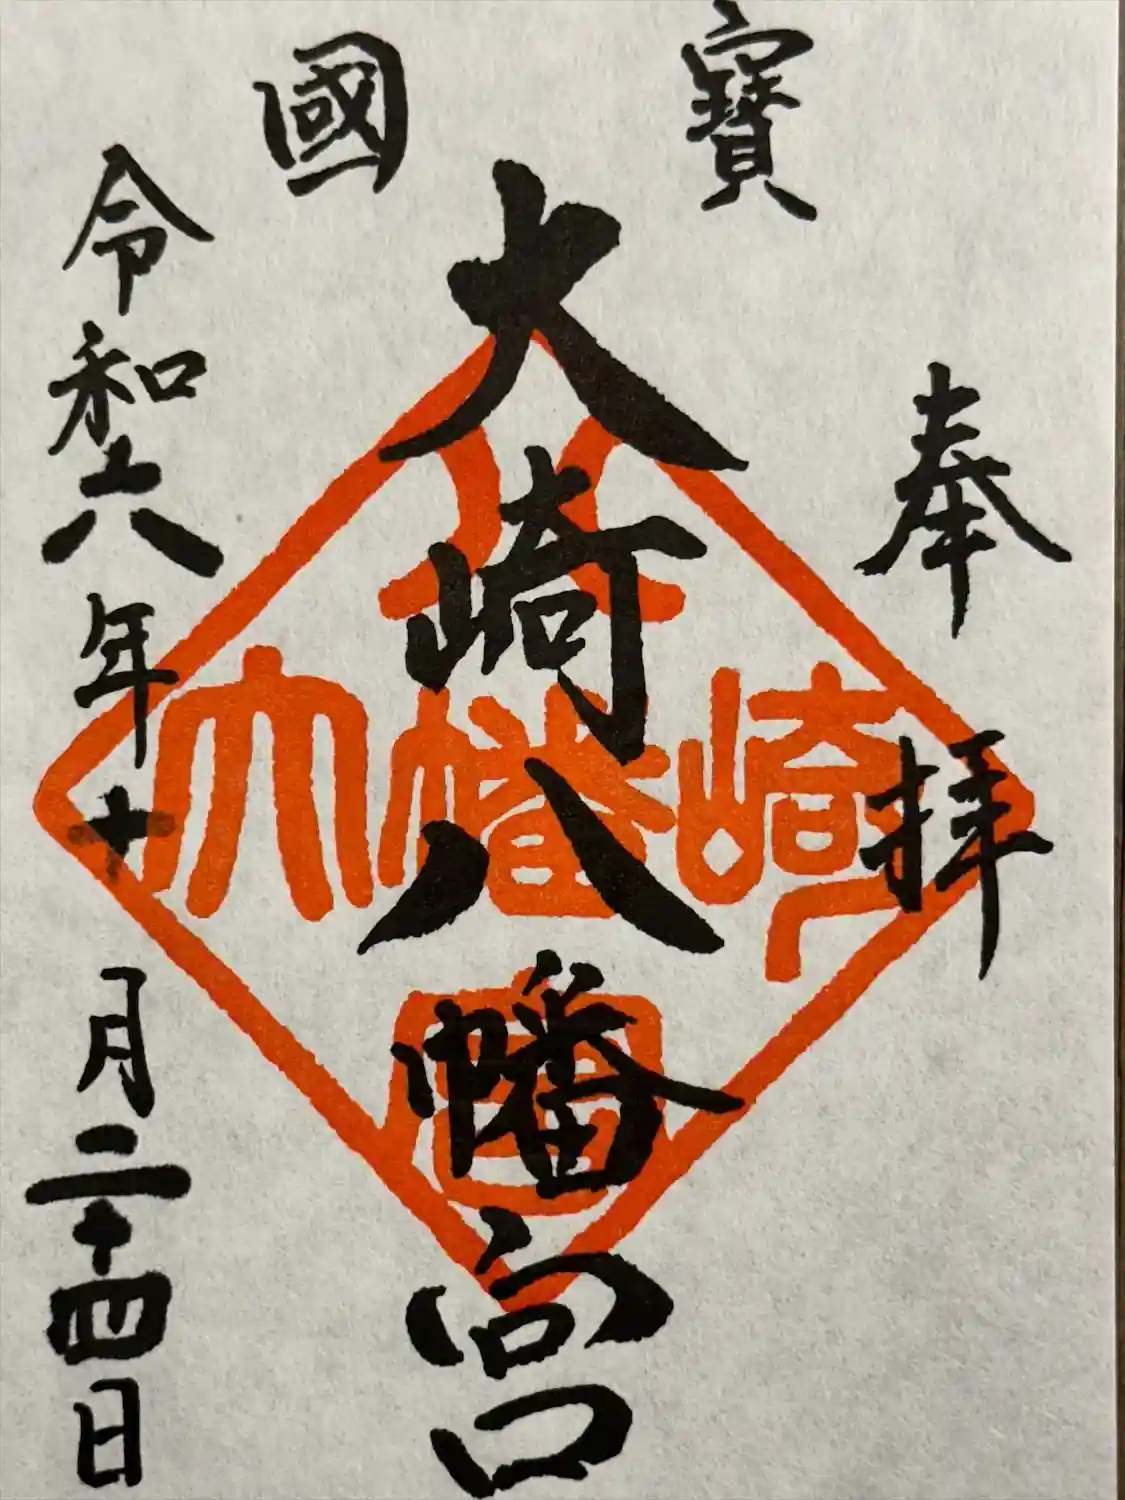 國寶
奉拝
大崎八幡宮
令和六年十月二十四日
大崎八幡宮